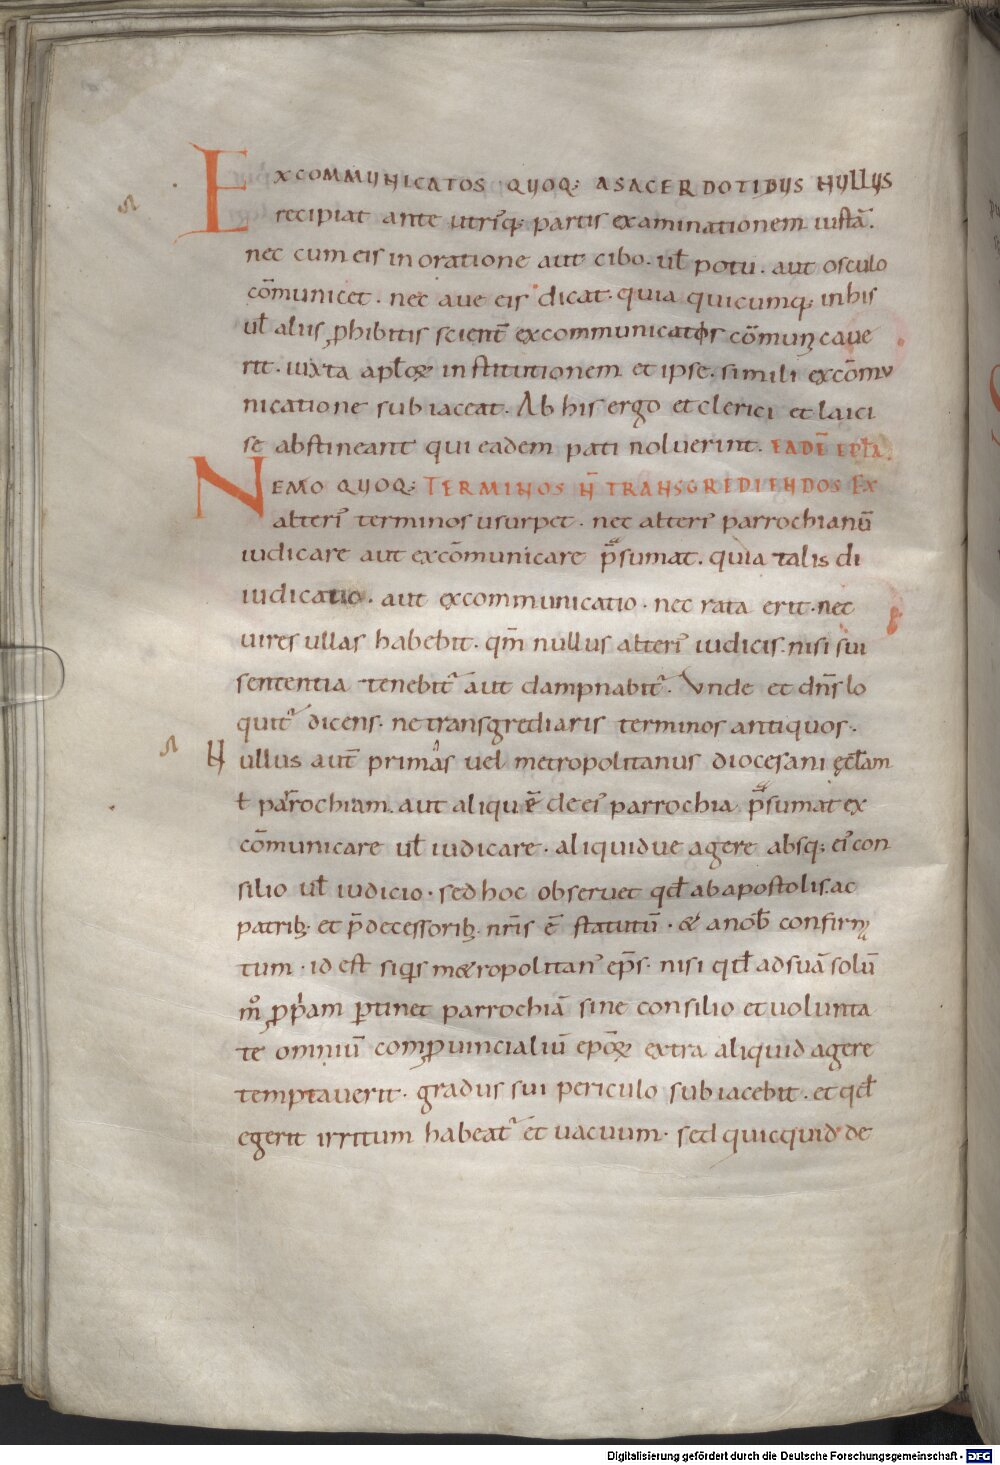 EXCOMMUNICATOS QUOQ; A SACERDOTIBUS NULLUS
recipiat ante utriq; partis examinationem iustā.
nec cum eis in oratione aut cibo. ul̄ potu. aut osculo
cōmunicet. nec aue eis dicat. quia quicumq; in his
ul̄ aliis ꝓhibitis scient̄ excommunicatos cōmunicaue
rit. iuxta apl̄oꝝ institutionem et ipse. simili excōmu
nicatione subiaceat. Ab his ergo et clerici et laici
se abstineant qui eadem pati noluerint. EADĒ EPLA.
NEMO QUOQ; TERMINOS N̄ TRANSGREDIENDOS EX
alteri᾽ terminos usurpet. nec alteri᾽ parrochianū
iudicare aut excōmunicare p̄sumat. quia talis di
iudicatio. aut excommunicatio. nec rata erit. nec
uires ullas habebit. qm̄ nullus alteri᾽ iudicis. nisi sui
sententia tenebit᾽ aut dampnabit᾽. Vnde et dn̄s lo
quit᾽ dicens. ne transgrediaris terminos antiquos.
Nullus aut̄ primas uel metropolitanus diocesani ęccl̄am
ł parrochiam. aut aliquē de ei᾽ parrochia p̄sumat ex
cōmunicare ul̄ iudicare. aliquidue agere absq; ei᾽ con
silio ul̄ iudicio. sed hoc obseruet qd̄ ab apostolis. ac
patrib; et p̄decessorib; nr̄is ē statutū. & a nob̄ confirma
tum. id est siquis m&ropolitan᾽ ep̄s. nisi qd̄ ad suā solū
m̊ ꝓp̱am ꝑtinet parrochiā sine consilio et uolunta
te omniū comꝓuincialiū ep̄oꝝ extra aliquid agere
temptauerit. gradus sui periculo subiacebit. et qd̄
egerit irritum habeat᾽ et uacuum. sed quicquid de
Digitalisierung gefördert durch die Deutsche Forschungsgemeinschaft - DFG